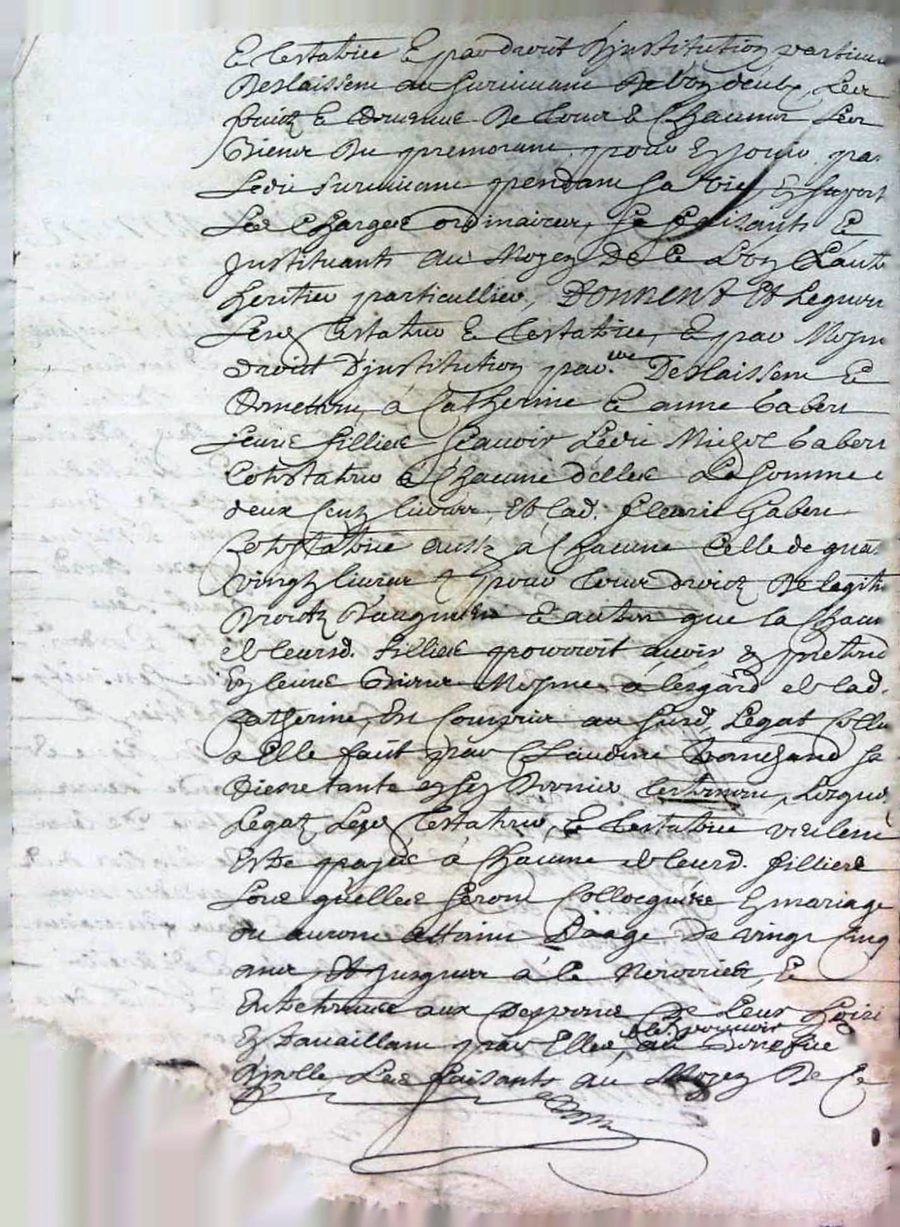 Et testatrice Et par droit d'jnstitution particu
Delaissent au survivant De l'un deulx, Les
fruictz Et Do Leurs Et Chacuns Leur
Biens Du premorant pour En jouir pa
Ledit survivant pendant sa vie, Et suport
Les Charges ordinaires, se faisants Et
Jnstituants au Moyen De Ce L'un L'aut
heritier particullier, DONNENT Et Leguen
Lesd Testateur Et testatrice, Et par Mesme
droict D'jnstitution par.re Delaissent Et
à Catherine Et anne Gabert
Leurs filliees sçavoir Ledit Michel Gabert
testateur à Chacune d'elles La somme
deux Centz livres, Et lad. fleurie Gabert
testatrice aussy à Chacune Celle de qua
vingtz livres Et pour Leur droictz De legiti
Droictz D'augment Et autres que la Chacu
de leursd. filliees pourroit avoir Et pretend
En leurs Biens Mesme à lesgard de lad.
Catherine, En Comprins au susd. Legat Celluy
à Elle fait par Claudine sa
tante En son Dernier testament, Lesquels
Legatz Lesd Testateur, Et testatrice veulent
Estre payés à Chacune de leursd. filliees
Lors qu'elles seront Collocquées En mariage
ou auront attaint L'aage De vingt Cinq
ans, Et Jusques à Ce Nourries, Et
Entretenues aux despens De Leurs hoiri
En travaillant par Elles de leur pouvoir au Benefice
D'jcelle Les faisants au Moyen De Ce